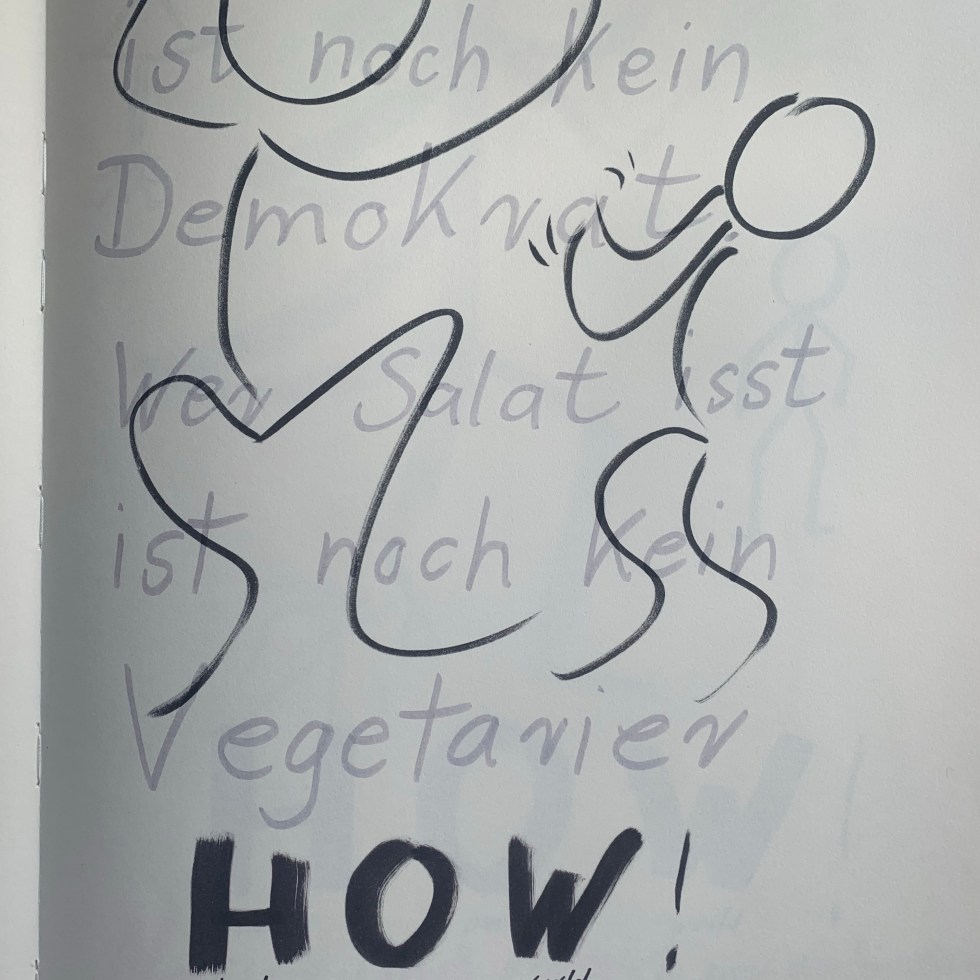 ist noch kein
Demokrat.
Wer Salat isst
ist noch kein
Vegetarier
HOW!